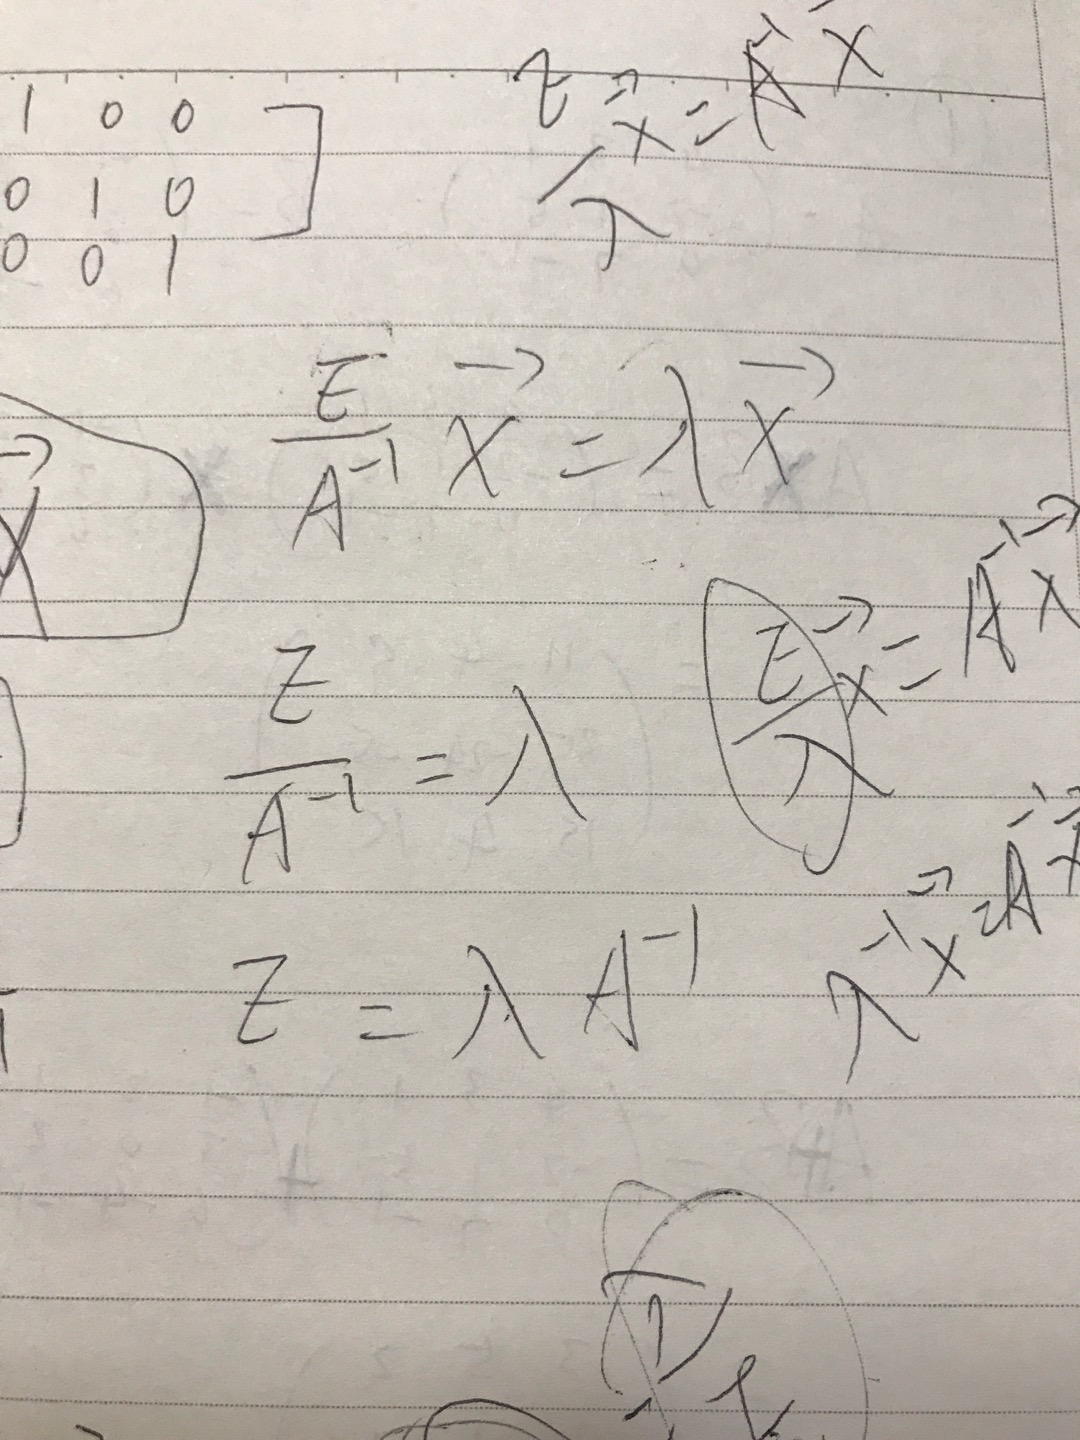 1 0 0 ]
0 1 0
0 0 1
E/λ x⃗ = A⁻¹ x⃗
E/A⁻¹ x⃗ = λ x⃗
x⃗
E/λ x⃗ = A⁻¹ x⃗
E/A⁻¹ = λ
λ⁻¹ x⃗ = A⁻¹ x⃗
E = λ A⁻¹